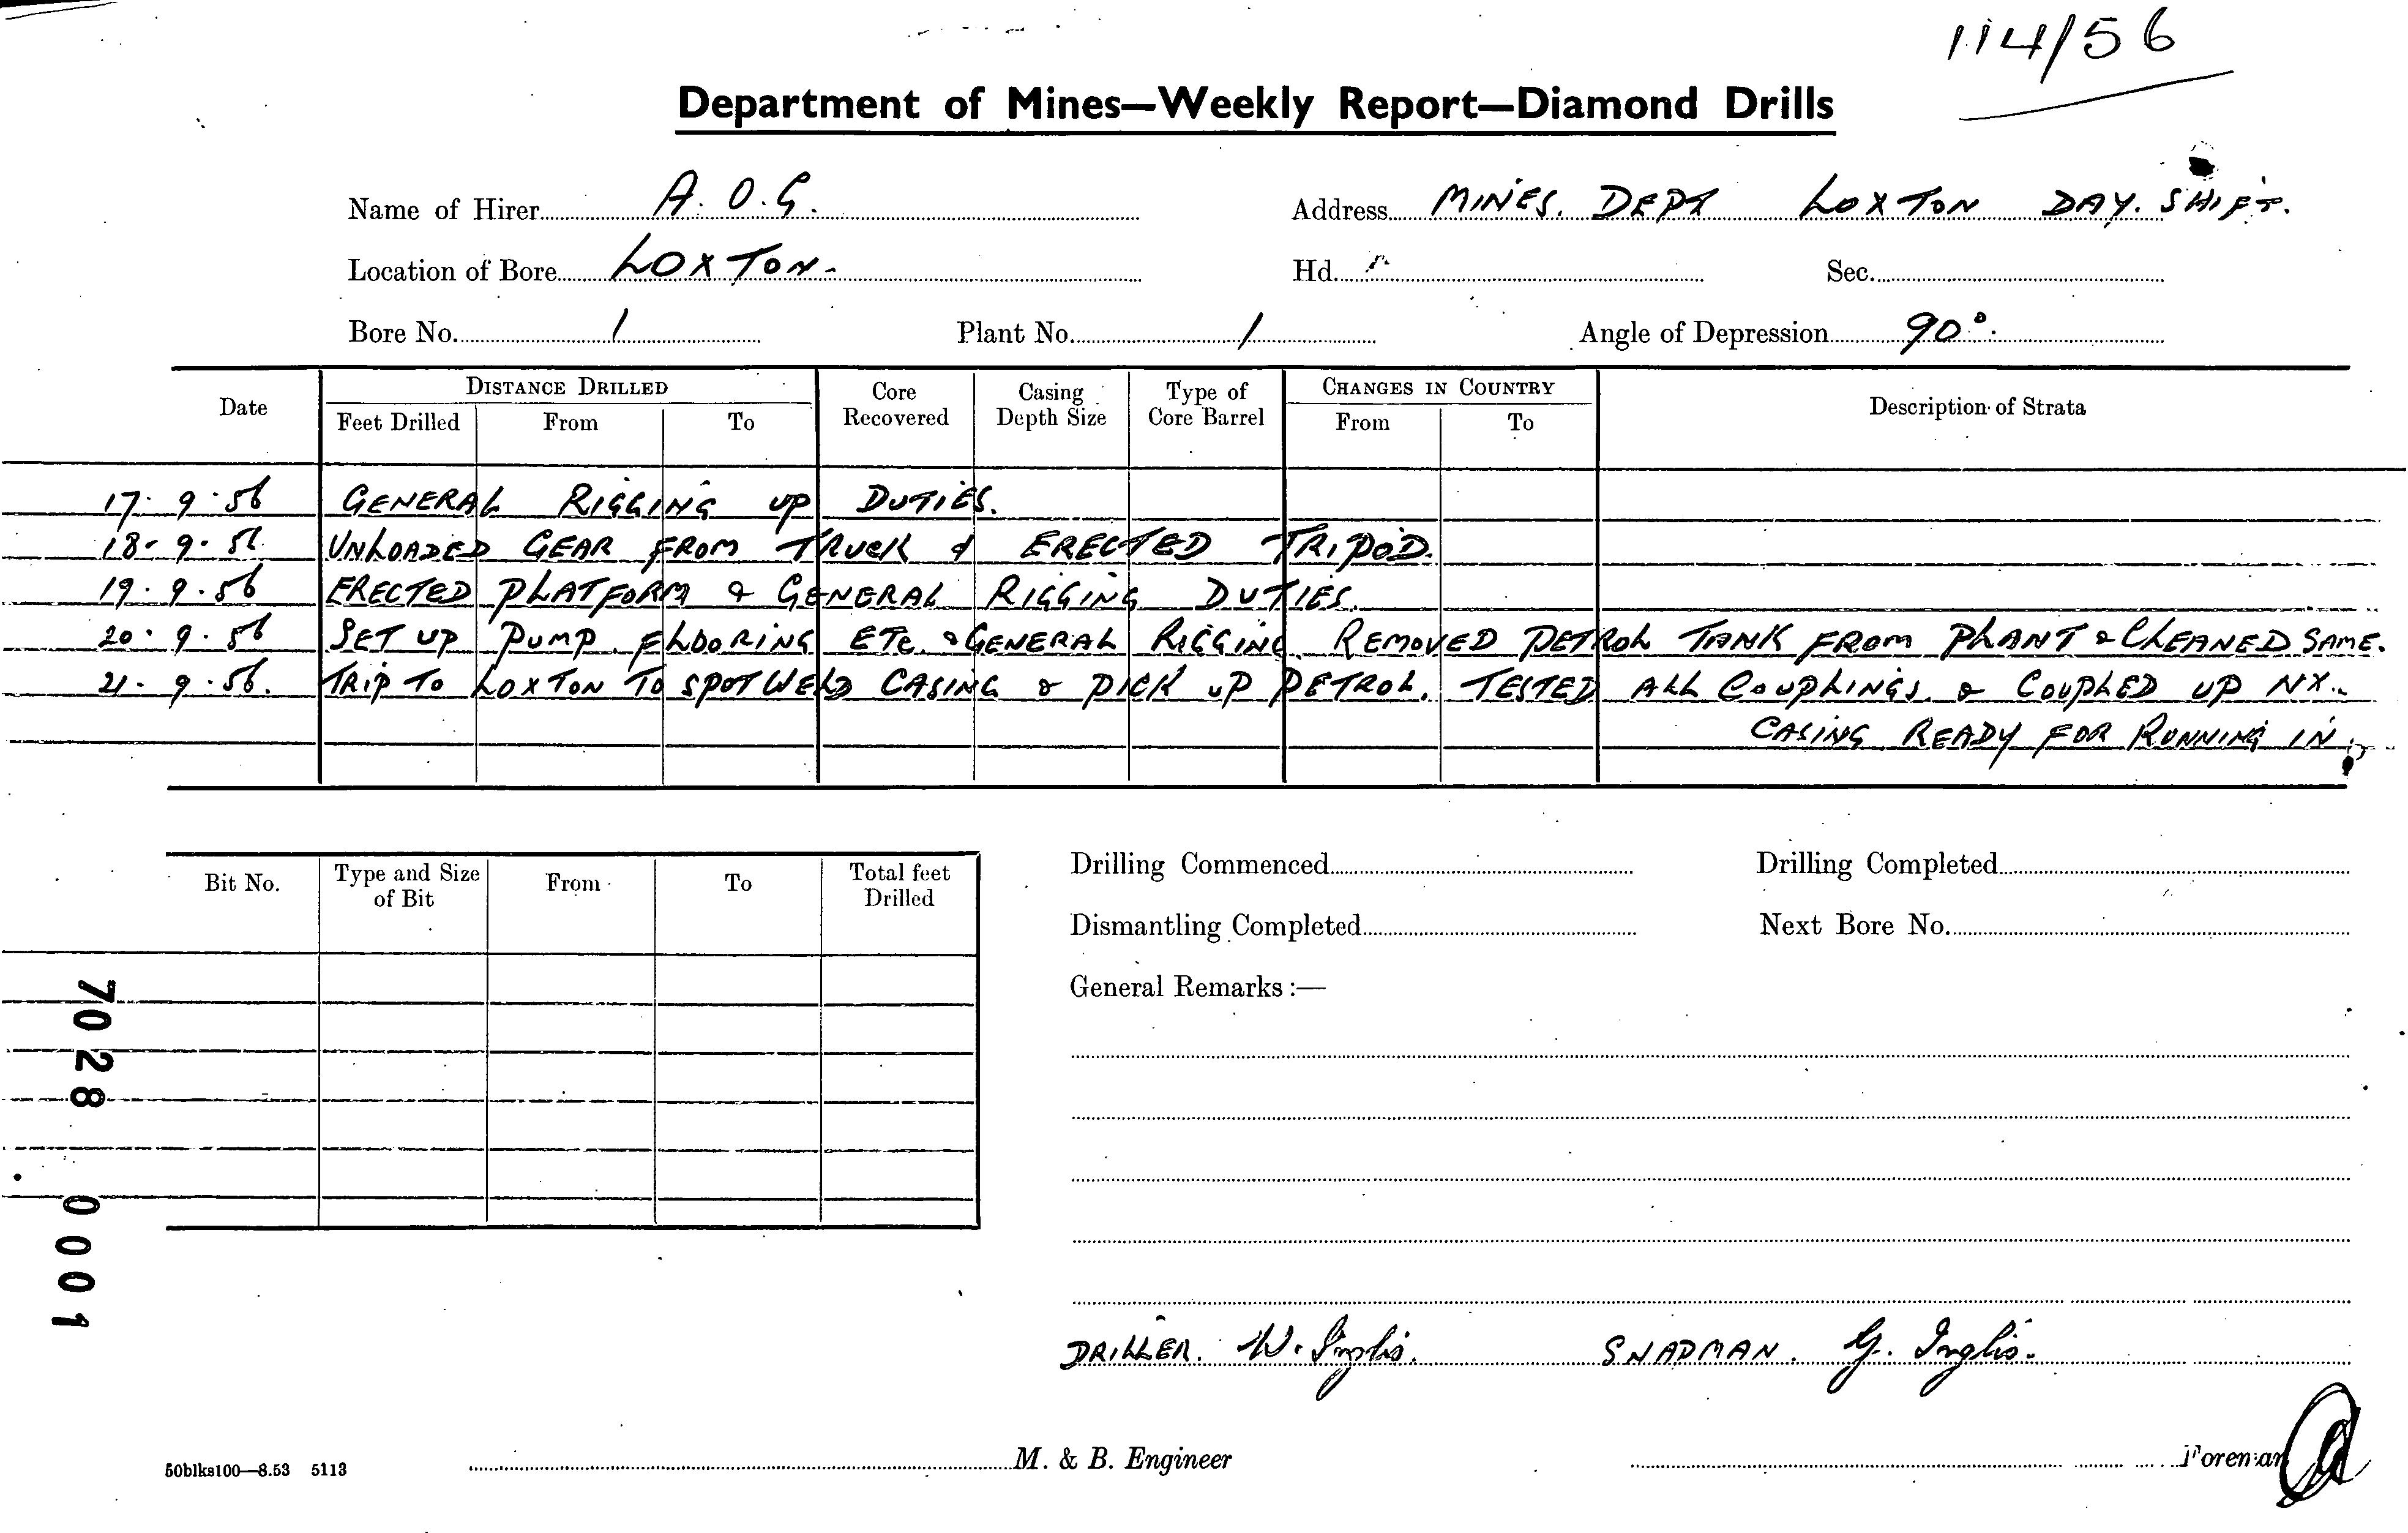 114/56
Department of Mines—Weekly Report—Diamond Drills
Name of Hirer A. O. G. Address MINES. DEPT LOXTON DAY. SHIFT.
Location of Bore LOXTON. Hd. Sec.
Bore No. 1 Plant No. 1 Angle of Depression 90°.
Date DISTANCE DRILLED Core Recovered Casing Depth Size Type of Core Barrel CHANGES IN COUNTRY Description of Strata
Feet Drilled From To From To
17. 9. 56 GENERAL RIGGING UP DUTIES.
18. 9. 56 UNLOADED GEAR FROM TRUCK & ERECTED TRIPOD.
19. 9. 56 ERECTED PLATFORM & GENERAL RIGGING DUTIES.
20. 9. 56 SET UP PUMP. FLOORING ETC. & GENERAL RIGGING. REMOVED PETROL TANK FROM PLANT & CLEANED SAME.
21. 9. 56. TRIP TO LOXTON TO SPOT WELD CASING & PICK UP PETROL. TESTED ALL COUPLINGS. & COUPLED UP NX.
CASING READY FOR RUNNING IN.
Bit No. Type and Size of Bit From To Total feet Drilled
Drilling Commenced Drilling Completed
Dismantling Completed Next Bore No.
General Remarks :—
7028 0001
DRILLER. W. Inglis. SNAPMAN. G. Inglis.
50blks100—8.53 5113 M. & B. Engineer Foreman